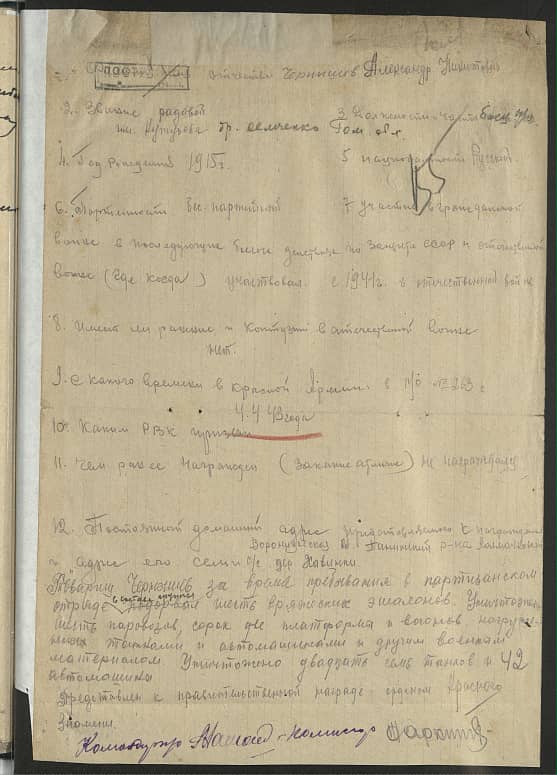 отчество Чернышев Александр Никитович
2. Звание рядовой 3 Должность часть боец п/о
им. Кутузова бр. Гом. обл.
4. Год рождения 1915 г. 5 национальность Русский
6. Партийность бес-партийный 7 участие в гражданской
войне в последующие боевые действия по защите СССР и отечественной
войне (где когда) участвовал с 1941 г. в отечественной войне
8. Имеет ли ранение и контузии в отечественной войне
нет.
9. С какого времени в красной Армии в п/о № 263 с
4.4 43 года
10. Каким РВК призван
11. Чем ранее награжден (за какие отличие) не награждался
12. Постоянный домашний адрес представляемого к награждению
Воронежской р-на
и адрес его семьи с/с дер.
Товарищ Чернышев за время пребывания в партизанском
в составе группы
отряде подорвал шесть вражеских эшалонов. Уничтожено
шесть паровозов, сорок две платформы и вогонов, нагружен-
ных танками и автомашинами и другим военым
материалом. Уничтожено двадцать семь танков и 42
автомашины
Представлен к правительственной награде орденом Красного
Знамени.
Командир Комиссар